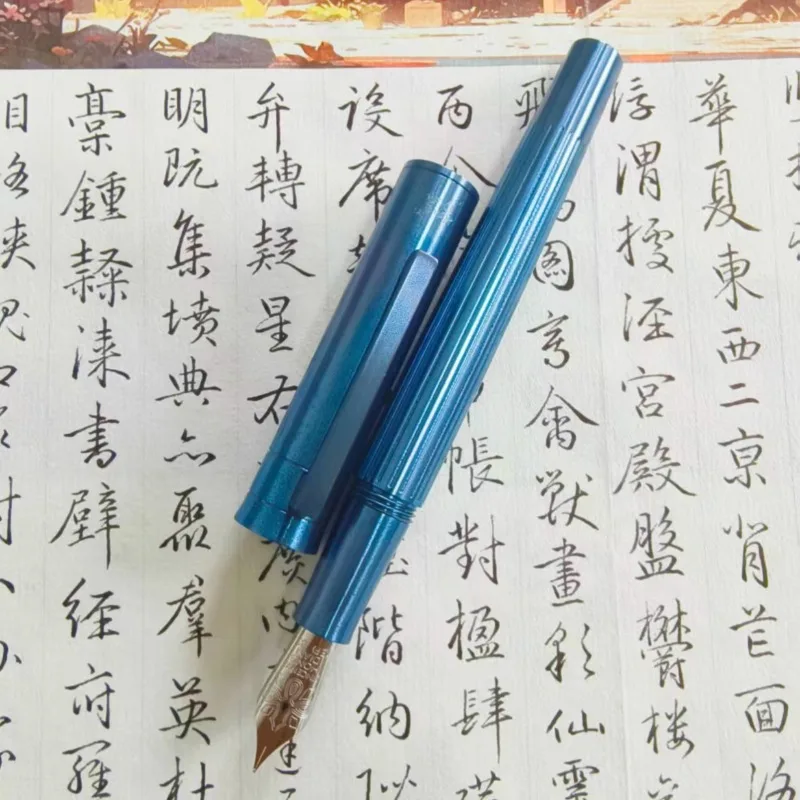 華夏東西二亰背芒面洛
浮渭據涇宮殿盤鬱樓
飛圖寫禽獸畫彩仙靈
丙舍帳對楹肆筵
設席階納陛
弁轉疑星右廣內達
明既集墳典亦聚羣英杜
稾鍾隸漆書壁經府羅
相路俠槐卿